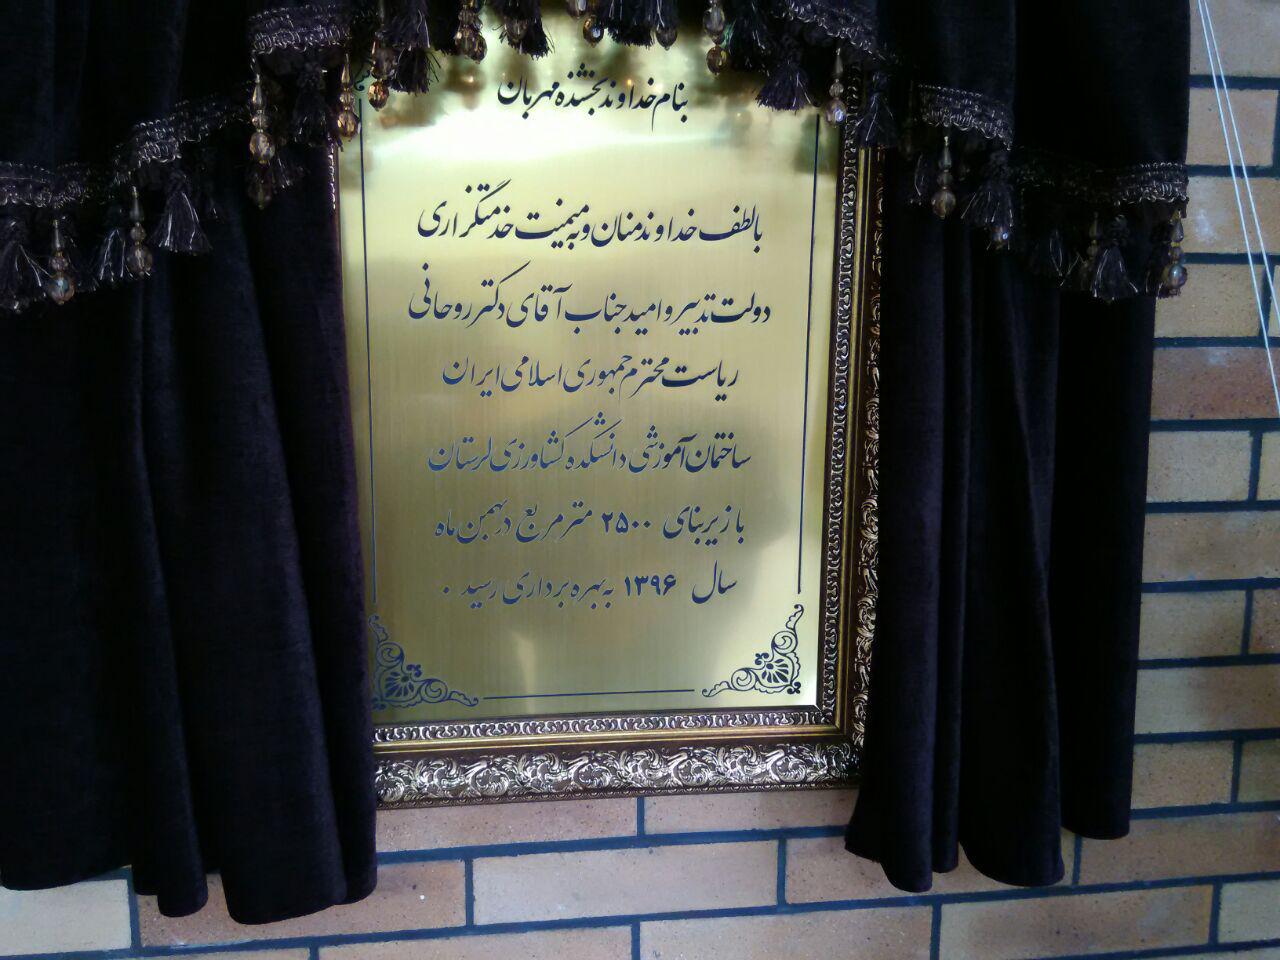 بنام خداوند بخشنده مهربان
با لطف خداوند منان و به میمنت خدمتگزاری
دولت تدبیر و امید جناب آقای دکتر روحانی
ریاست محترم جمهوری اسلامی ایران
ساختمان آموزشی دانشکده کشاورزی لرستان
با زیربنای ۲۵۰۰ متر مربع در بهمن ماه
سال ۱۳۹۶ به بهره برداری رسید .